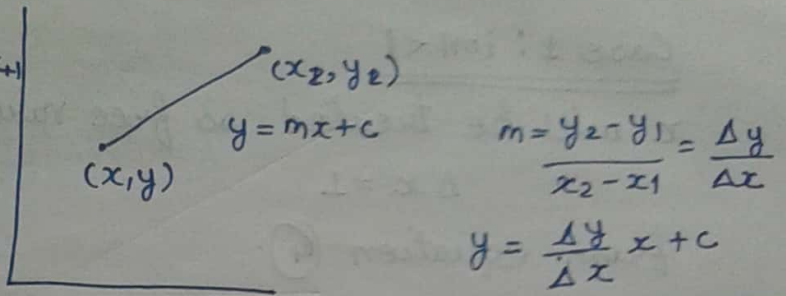 (x₂, y₂)
y = mx + c
(x, y)
m = y₂ - y₁ / x₂ - x₁ = Δy / Δx
y = Δy / Δx x + c